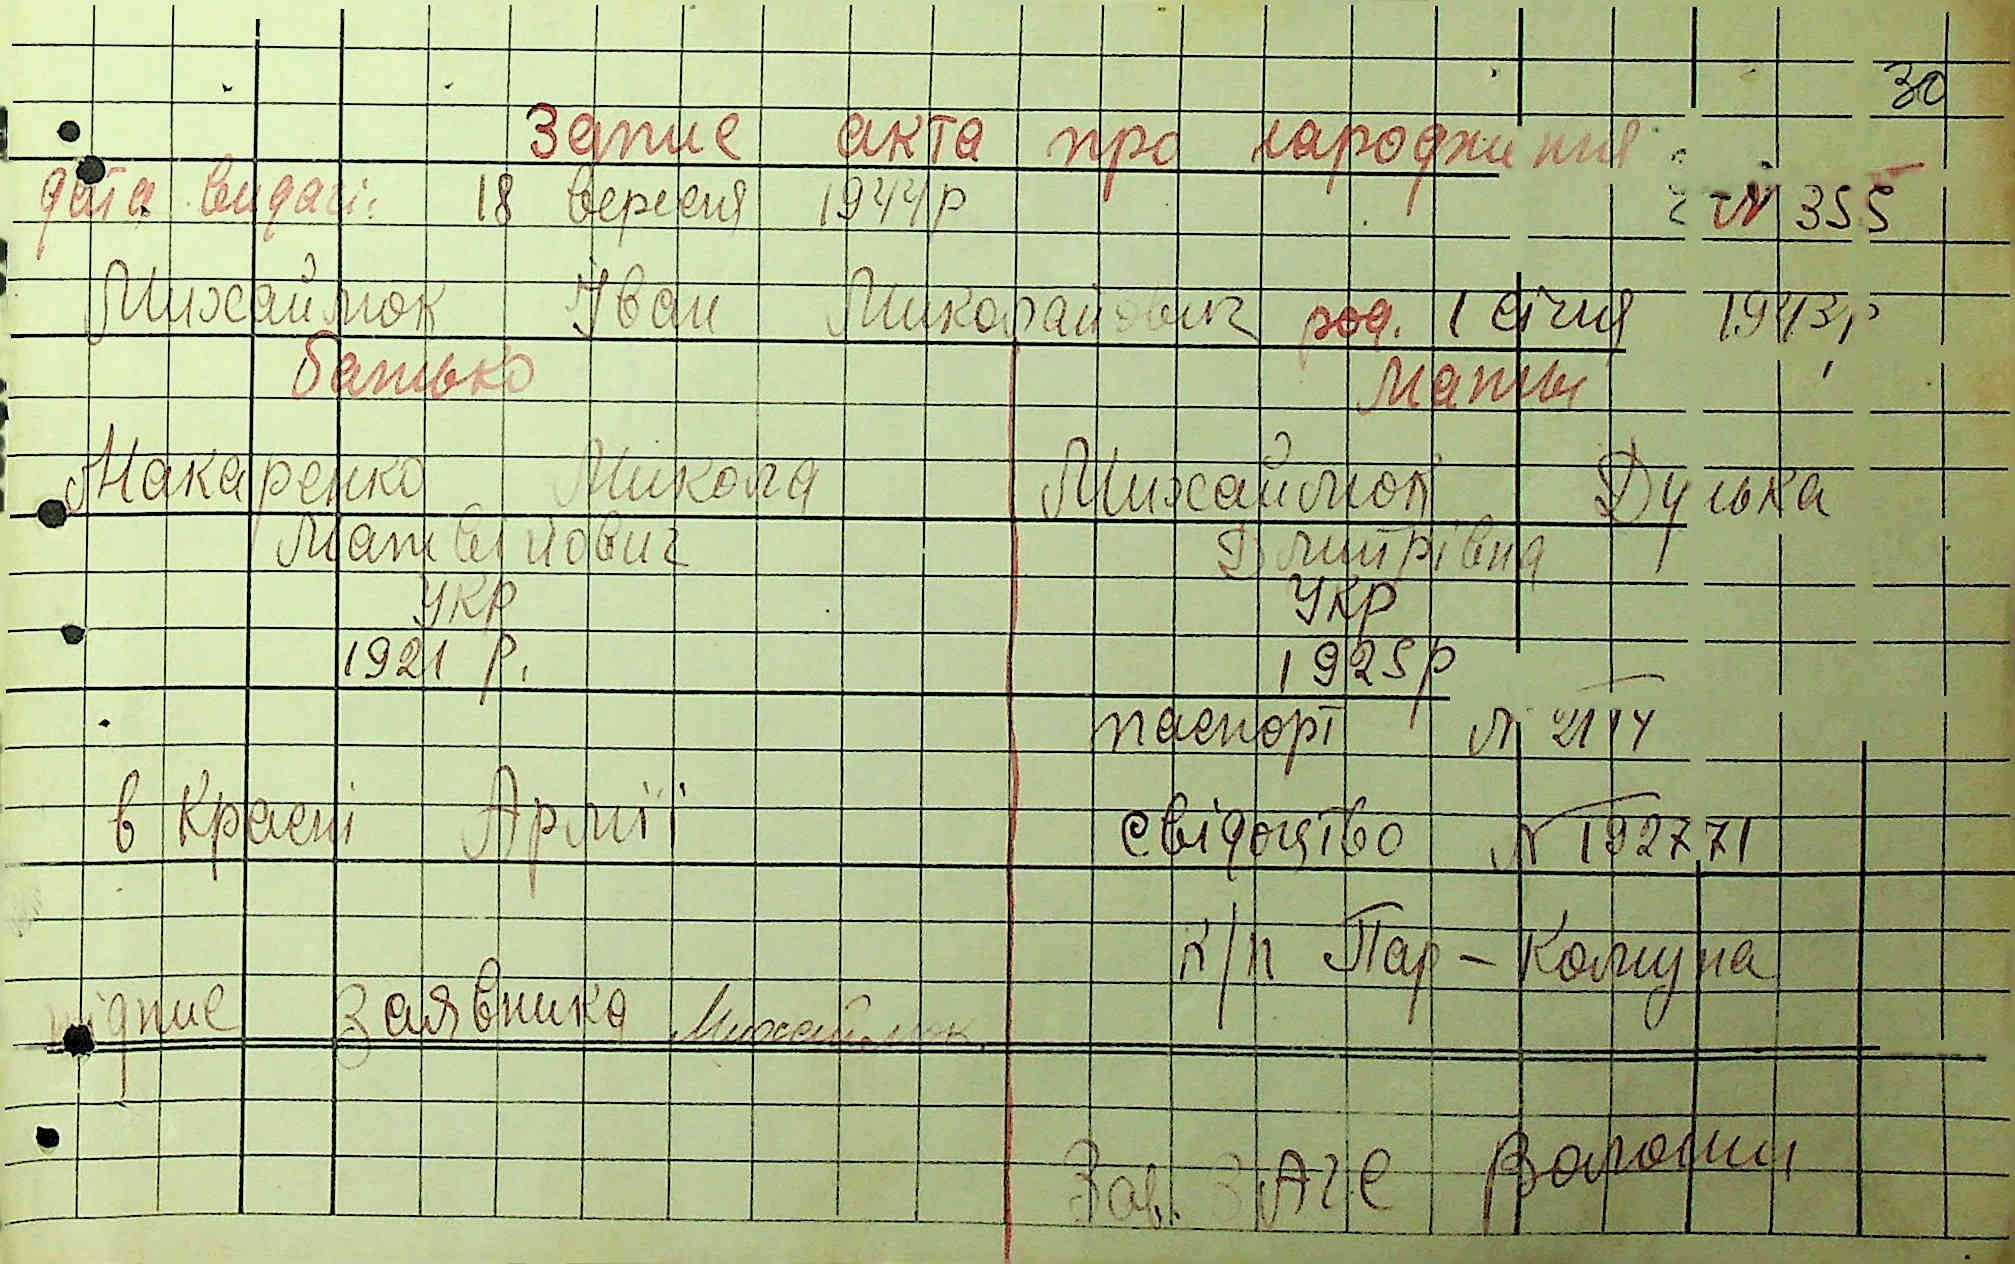 30
Запис акта про народження
дата видачі: 18 вересня 1944р № 355
Михайлюк Іван Миколайович род. 1 січня 1943р
батько мати
Макаренко Микола Михайлюк Дунька
Матвійович Дмитрівна
Укр Укр
1921 р. 1925р
паспорт №
в Красні Армії свідоцтво № 192771
к/п Пар-Комуна
підпис заявника Михайлюк
Зав. ЗАГС Волошин